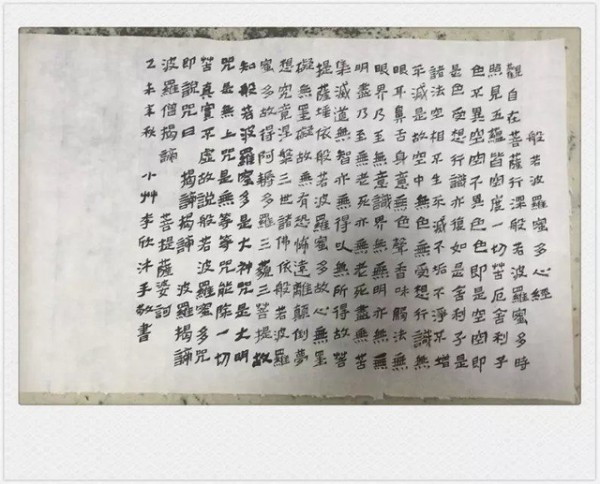 般若波羅蜜多心經
觀自在菩薩行深般若波羅蜜多時
照見五蘊皆空度一切苦厄舍利子
色不異空空不異色色即是空空即
是色受想行識亦復如是舍利子是
諸法空相不生不滅不垢不淨不增
不減是故空中無色無受想行識無
眼耳鼻舌身意無色聲香味觸法無
眼界乃至無意識界無無明亦無無
明盡乃至無老死亦無老死盡無苦
集滅道無智亦無得以無所得故菩
提薩埵依般若波羅蜜多故心無罣
礙無罣礙故無有恐怖遠離顛倒夢
想究竟涅槃三世諸佛依般若波羅
蜜多故得阿耨多羅三藐三菩提故
知般若波羅蜜多是大神咒是大明
咒是無上咒是無等等咒能除一切
苦真實不虛故說般若波羅蜜多咒
即說咒曰 揭諦揭諦 波羅揭諦
波羅僧揭諦 菩提薩婆訶
乙未年秋 小艸李欣沐手敬書